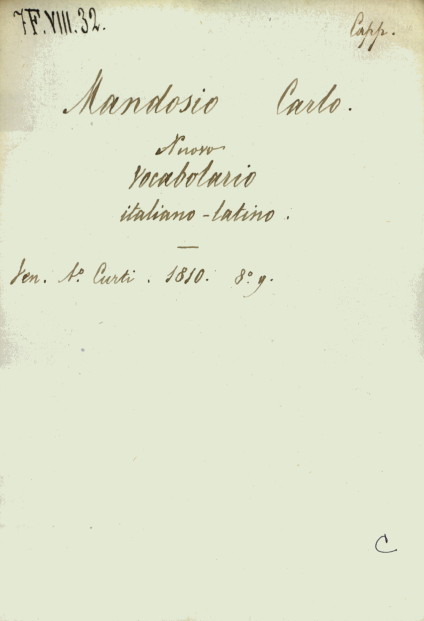 7F.VIII.32.
Capp.
Mandosio Carlo.
Nuovo
Vocabolario
italiano-latino.
Ven. Aº Curti. 1810. 8º. g.
C